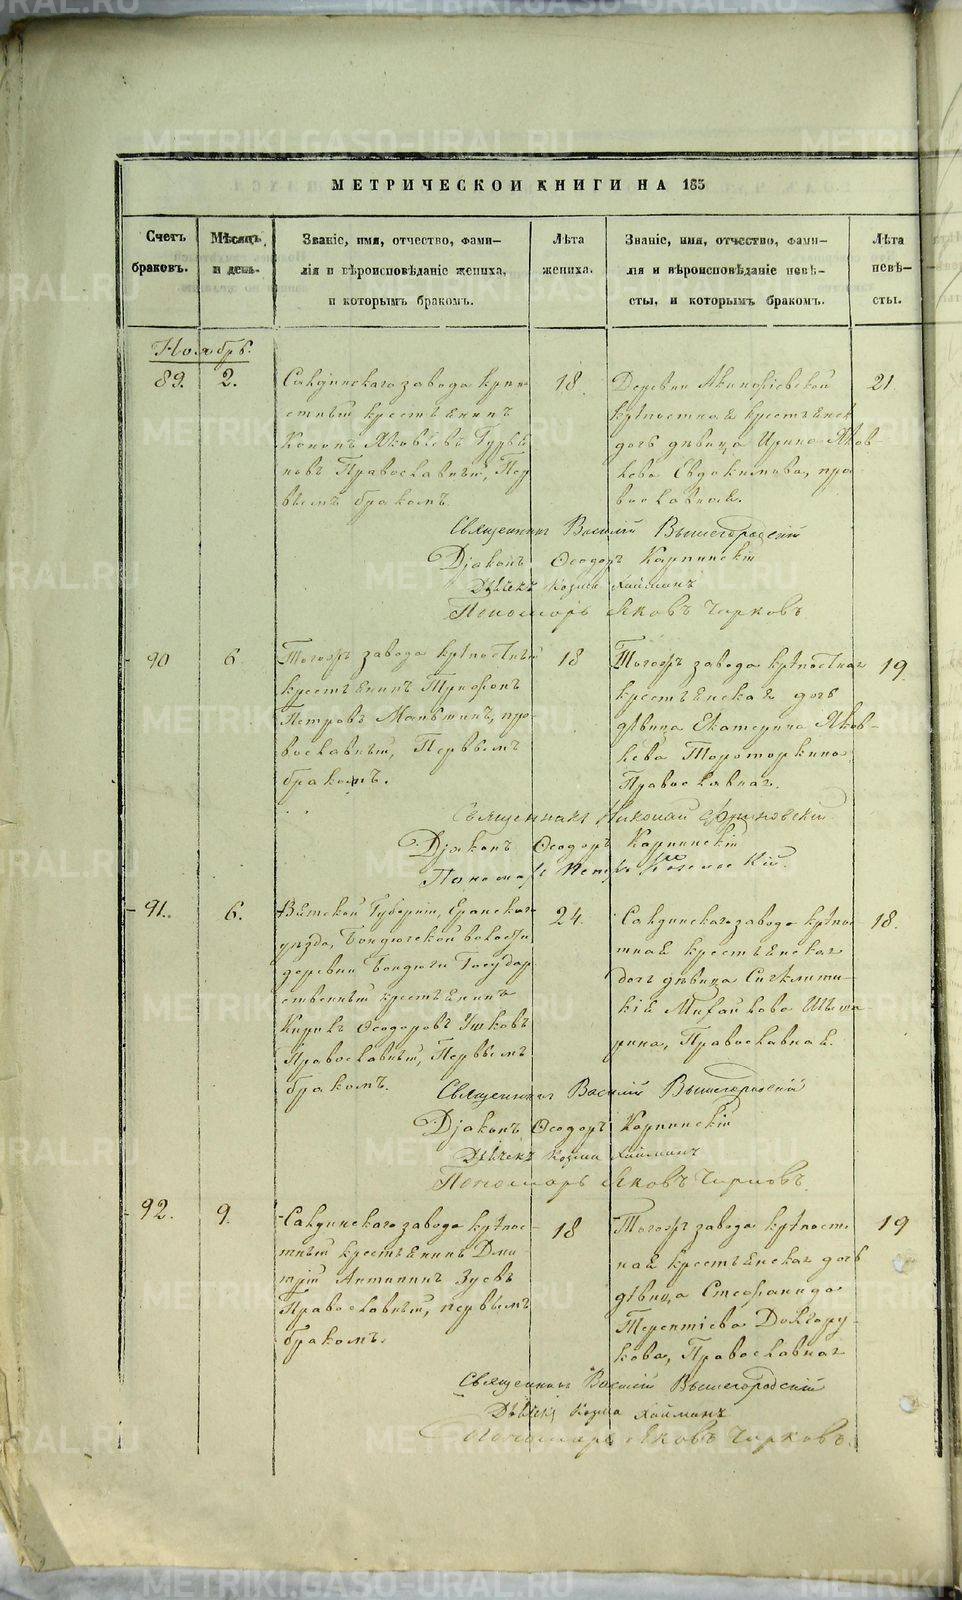 МЕТРИЧЕСКОЙ КНИГИ НА 185
Счетъ браковъ.
Мѣсяцъ и день.
Званіе, имя, отчество, фами-
лія и вѣроисповѣданіе жениха,
и которымъ бракомъ.
Лѣта
жениха.
Званіе, имя, отчество, фами-
лія и вѣроисповѣданіе невѣ-
сты, и которымъ бракомъ.
Лѣта
невѣ-
сты.
Ноябрь.
89. 2.
Салдинскаго завода крѣпо-
стный крестьянинъ
Кононъ Яковлевъ
Православный, Пер
вымъ бракомъ.
18.
Деревни
крѣпостная крестьянск
дочь дѣвица Ирина Яков-
лева Евдокимова, пра
вославная.
21.
Священникъ Василій Вышегородскій
Діаконъ Ѳеодоръ Карпинскій
Дьячекъ Козма Хайминъ
Пономарь Яковъ Чирковъ
90 6.
Тогожъ завода крѣпостный
крестьянинъ Трифонъ
Петровъ Маньшинъ, пра-
вославный, Первымъ
бракомъ.
18
Тогожъ завода крѣпостная
крестьянская дочь
дѣвица Екатерина Яков-
лева Тороторкина
Православная.
19.
Священникъ Николай
Діаконъ Ѳеодоръ Карпинскій
Пономарь Петръ
91. 6.
Вятской Губерніи, Еранскаго
уѣзда, Бондюгской волости
деревни Бондюги Государ
ственный крестьянинъ
Кирикъ Ѳеодоровъ Ушковъ
Православный, Первымъ
бракомъ.
24.
Салдинскаго завода крѣпос
тная крестьянская
дочь дѣвица Сигклити-
кія Михайлова
рина, Православная.
18.
Священникъ Василій Вышегородскій
Діаконъ Ѳеодоръ Карпинскій
Дьячекъ Козма Хайминъ
Пономарь Яковъ Чирковъ.
92. 9.
Салдинскаго завода крѣпос-
тный крестьянинъ Дми-
трій Антипинъ Зуевъ
Православный, первымъ
бракомъ.
18
Тогожъ завода крѣпост-
ная крестьянская дочь
дѣвица Стефанида
Терентіева Долгору-
кова, Православная
19
Священникъ Василій Вышегородскій
Дьячекъ Козма Хайминъ
Пономарь Яковъ Чирковъ.
METRIKI.GASO-URAL.RU